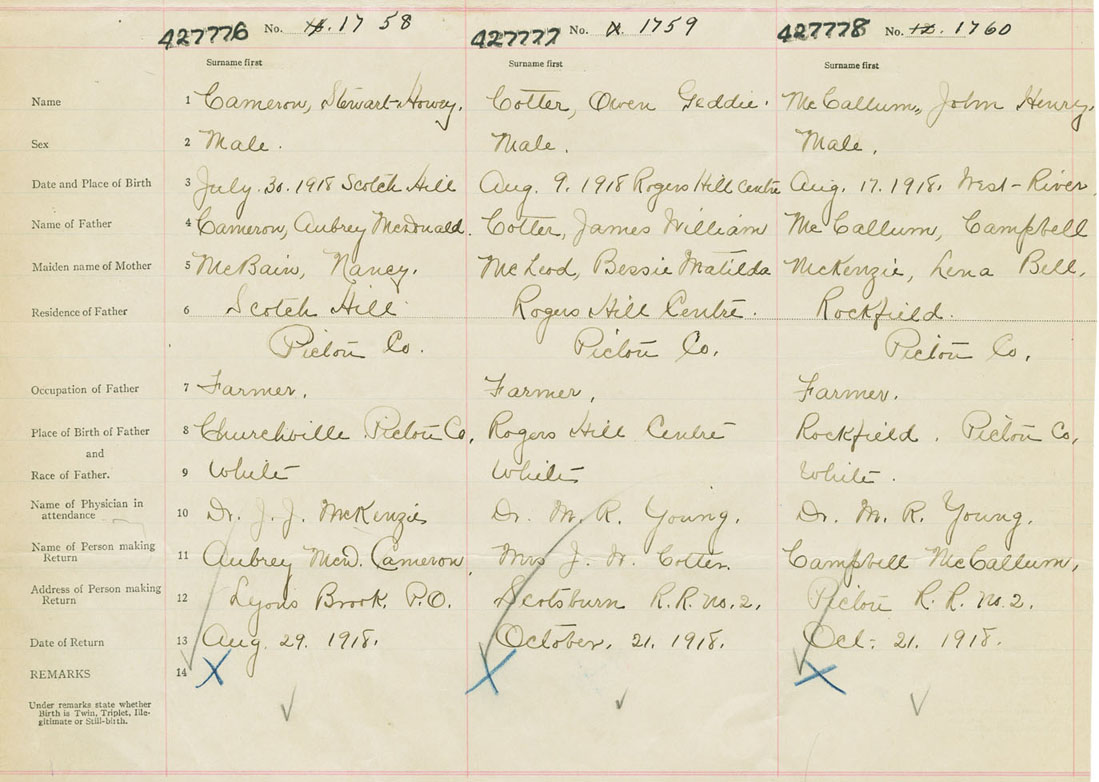 427776 No. 1758 427777 No. 1759 427778 No. 1760
Surname first Surname first Surname first
Name 1 Cameron, Stewart Howey. Cotter, Owen Geddie. McCallum, John Henry.
Sex 2 Male. Male. Male.
Date and Place of Birth 3 July. 30. 1918 Scotch Hill Aug. 9. 1918 Rogers Hill Centre Aug. 17. 1918. West-River.
Name of Father 4 Cameron, Aubrey McDonald. Cotter, James William McCallum, Campbell
Maiden name of Mother 5 McBain, Nancy. McLeod, Bessie Matilda McKenzie, Lena Bell.
Residence of Father 6 Scotch Hill Rogers Hill Centre. Rockfield.
Pictou Co. Pictou Co. Pictou Co.
Occupation of Father 7 Farmer. Farmer. Farmer.
Place of Birth of Father 8 Churchville Pictou Co. Rogers Hill Centre Rockfield. Pictou Co.
and
Race of Father. 9 White White White.
Name of Physician in
attendance 10 Dr. J. J. McKenzie Dr. M. R. Young. Dr. M. R. Young.
Name of Person making
Return 11 Aubrey McD. Cameron. Mrs J. W. Cotter. Campbell McCallum.
Address of Person making
Return 12 Lyons Brook. P.O. Scotsburn R.R. No. 2. Pictou R.R. No. 2.
Date of Return 13 Aug. 29. 1918. October. 21. 1918. Oct. 21. 1918.
REMARKS 14 X X X
Under remarks state whether
Birth is Twin, Triplet, Ille-
gitimate or Still-birth.